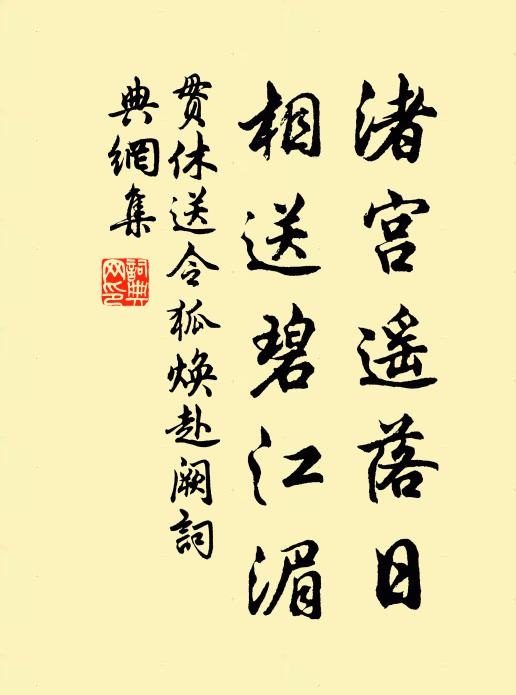 渚宫遥落日
相送碧江湄
贯休送令狐焕赴阙詞
典網集
詞典
网印